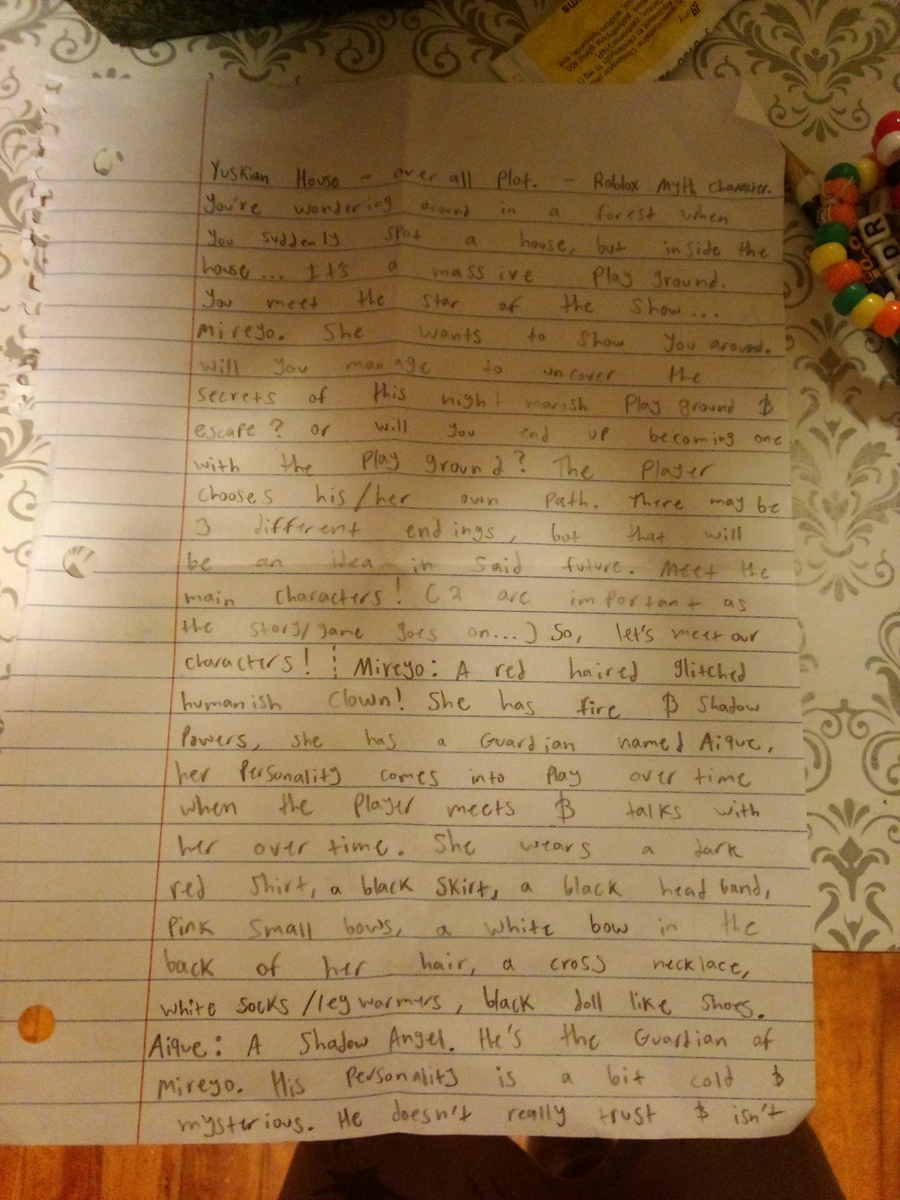 Yuskian House - over all Plot. - Roblox Myth character.
You're wondering around in a forest when
you suddenly spot a house, but inside the
house... It's a massive Play ground.
You meet the star of the show...
Mireyo. She wants to show you around.
will you manage to uncover the
secrets of this nightmarish Play ground &
escape? or will you end up becoming one
with the Play ground? The Player
chooses his/her own Path. There may be
3 different endings, but that will
be an idea in said future. Meet the
main characters! (2 are important as
the story/game goes on...) So, let's meet our
characters! ¦ Mireyo: A red haired glitched
humanish Clown! She has fire & Shadow
Powers, she has a Guardian named Aique,
her Personality comes into Play over time
when the Player meets & talks with
her over time. She wears a dark
red shirt, a black skirt, a black head band,
Pink small bows, a white bow in the
back of her hair, a cross necklace,
white socks/leg warmers, black doll like shoes.
Aique: A Shadow Angel. He's the Guardian of
Mireyo. His Personality is a bit cold &
mysterious. He doesn't really trust & isn't